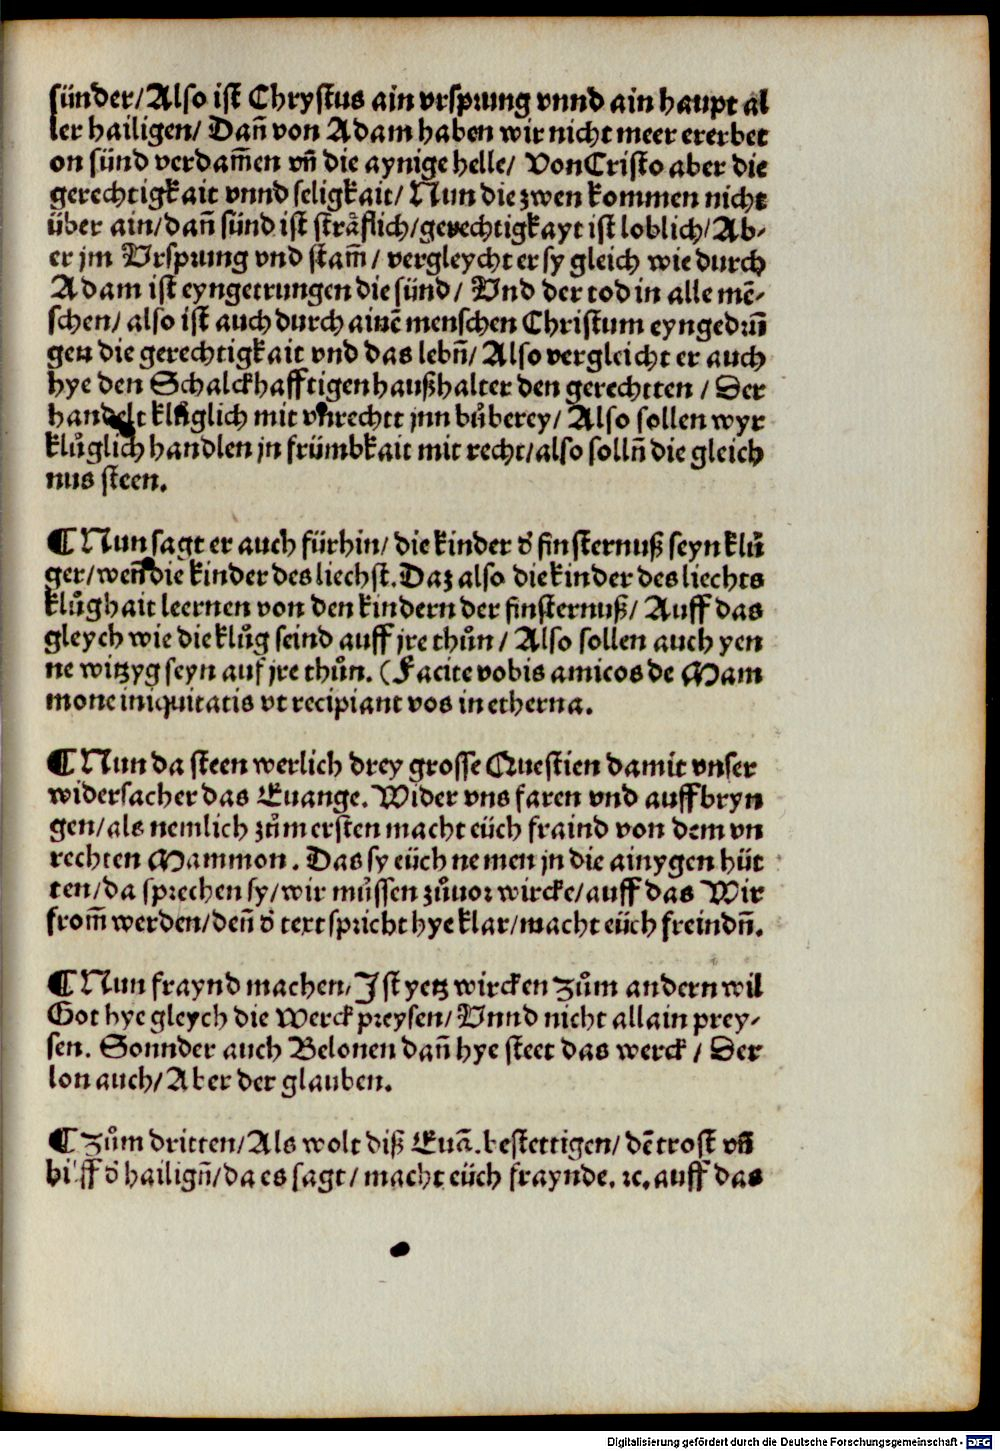 sünder/Also ist Chrystus ain vrsprung vnnd ain haupt al
ler hailigen/ Dañ von Adam haben wir nicht meer ererbet
on sünd verdam̃en vñ die aynige helle/ Von Cristo aber die
gerechtigkait vnnd seligkait/ Nun die zwen kommen nicht
über ain/dañ sünd ist sträflich/gerechtigkayt ist loblich/Ab⸗
er jm Vrsprung vnd stam̃/ vergleycht er sy gleich wie durch
Adam ist eyngetrungen die sünd/ Vnd der tod in alle mẽ⸗
schen/ also ist auch durch ainẽ menschen Christum eyngedrũ
gen die gerechtigkait vnd das lebñ/ Also vergleicht er auch
hye den Schalckhafftigen haußhalter den gerechtten / Der
handelt klůglich mit vnrechtt jnn bůberey/ Also sollen wyr
klůglich handlen jn frümbkait mit recht/also sollñ die gleich
nus steen.
¶ Nun sagt er auch fürhin/ die kinder d̓ finsternuß seyn klů
ger/wenñ die kinder des liechst. Daz also die kinder des liechts
klůghait leernen von den kindern der finsternuß/ Auff das
gleych wie die klůg seind auff jre thůn/ Also sollen auch yen
ne witzyg seyn auf jre thůn. (Facite vobis amicos de Mam
mone iniquitatis vt recipiant vos in etherna.
¶ Nun da steen werlich drey grosse Questien damit vnser
widersacher das Euange. Wider vns faren vnd auffbryn
gen/als nemlich zům ersten macht eüch fraind von dem vn
rechten Mammon. Das sy eüch nemen jn die ainygen hüt
ten/da sprechen sy/wir můssen zůuor wircke/auff das Wir
from̃ werden/deñ d̓ text spricht hye klar/macht eüch freindñ.
¶ Nun fraynd machen/Ist yetz wircken Zům andern wil
Got hye gleych die Werck preysen/Vnnd nicht allain prey⸗
sen. Sonnder auch Belonen dañ hye steet das werck / Der
lon auch/Aber der glauben.
¶ Zům dritten/Als wolt diß Euã.bestettigen/dẽ trost vñ
hilff d̓ hailigñ/da es sagt/ macht eüch fraynde.ꝛc.auff das
Digitalisierung gefördert durch die Deutsche Forschungsgemeinschaft - DFG